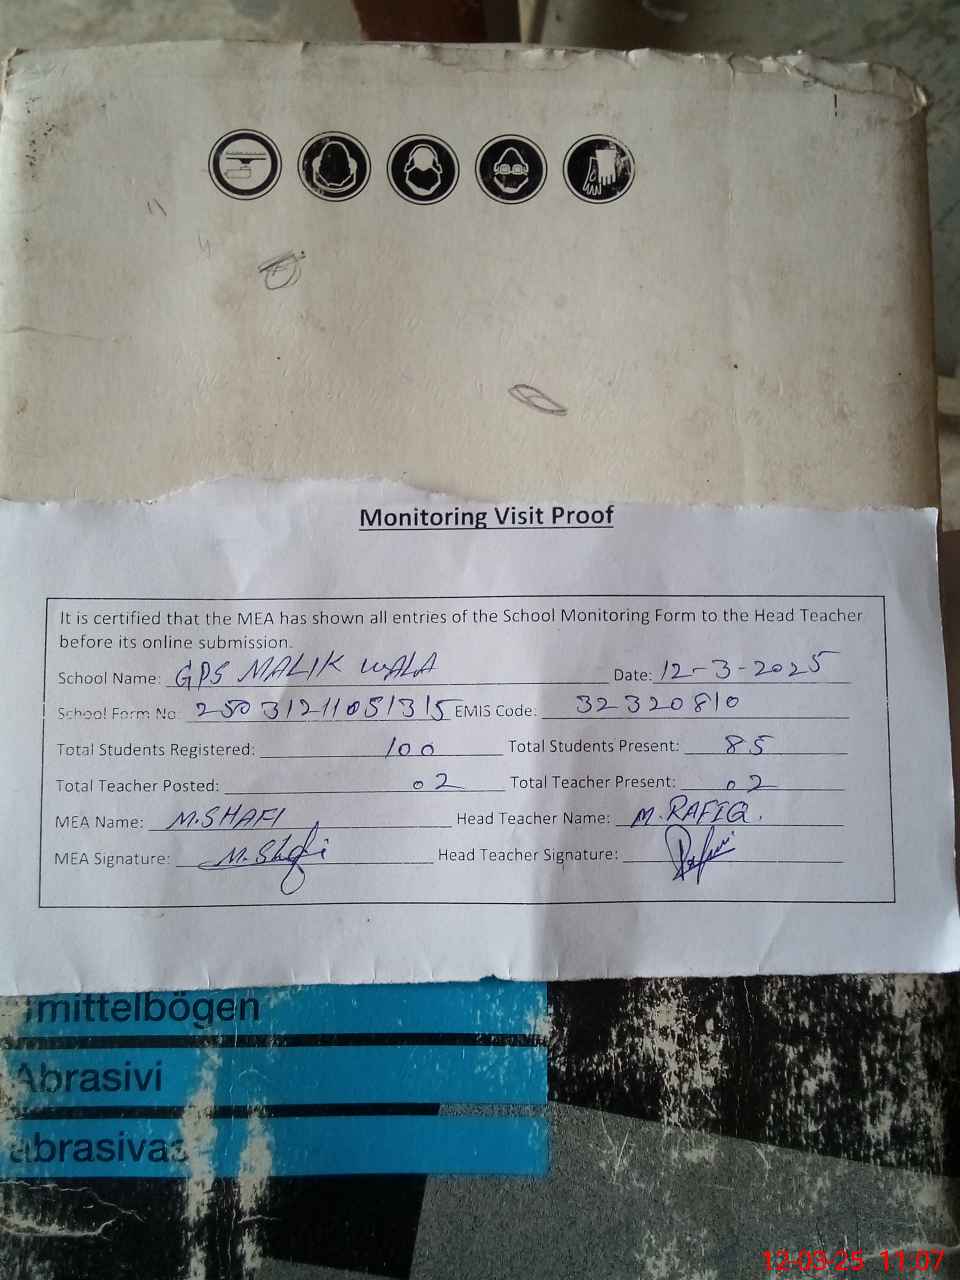 Monitoring Visit Proof
It is certified that the MEA has shown all entries of the School Monitoring Form to the Head Teacher
before its online submission.
School Name: GPS MALIK WALA Date: 12-3-2025
School Form No: 25031211051315 EMIS Code: 32320810
Total Students Registered: 100 Total Students Present: 85
Total Teacher Posted: 02 Total Teacher Present: 02
MEA Name: M.SHAFI Head Teacher Name: M.RAFIQ.
MEA Signature: M.Shafi Head Teacher Signature:
mittelbögen
Abrasivi
abrasivas
12-03-25 11:07